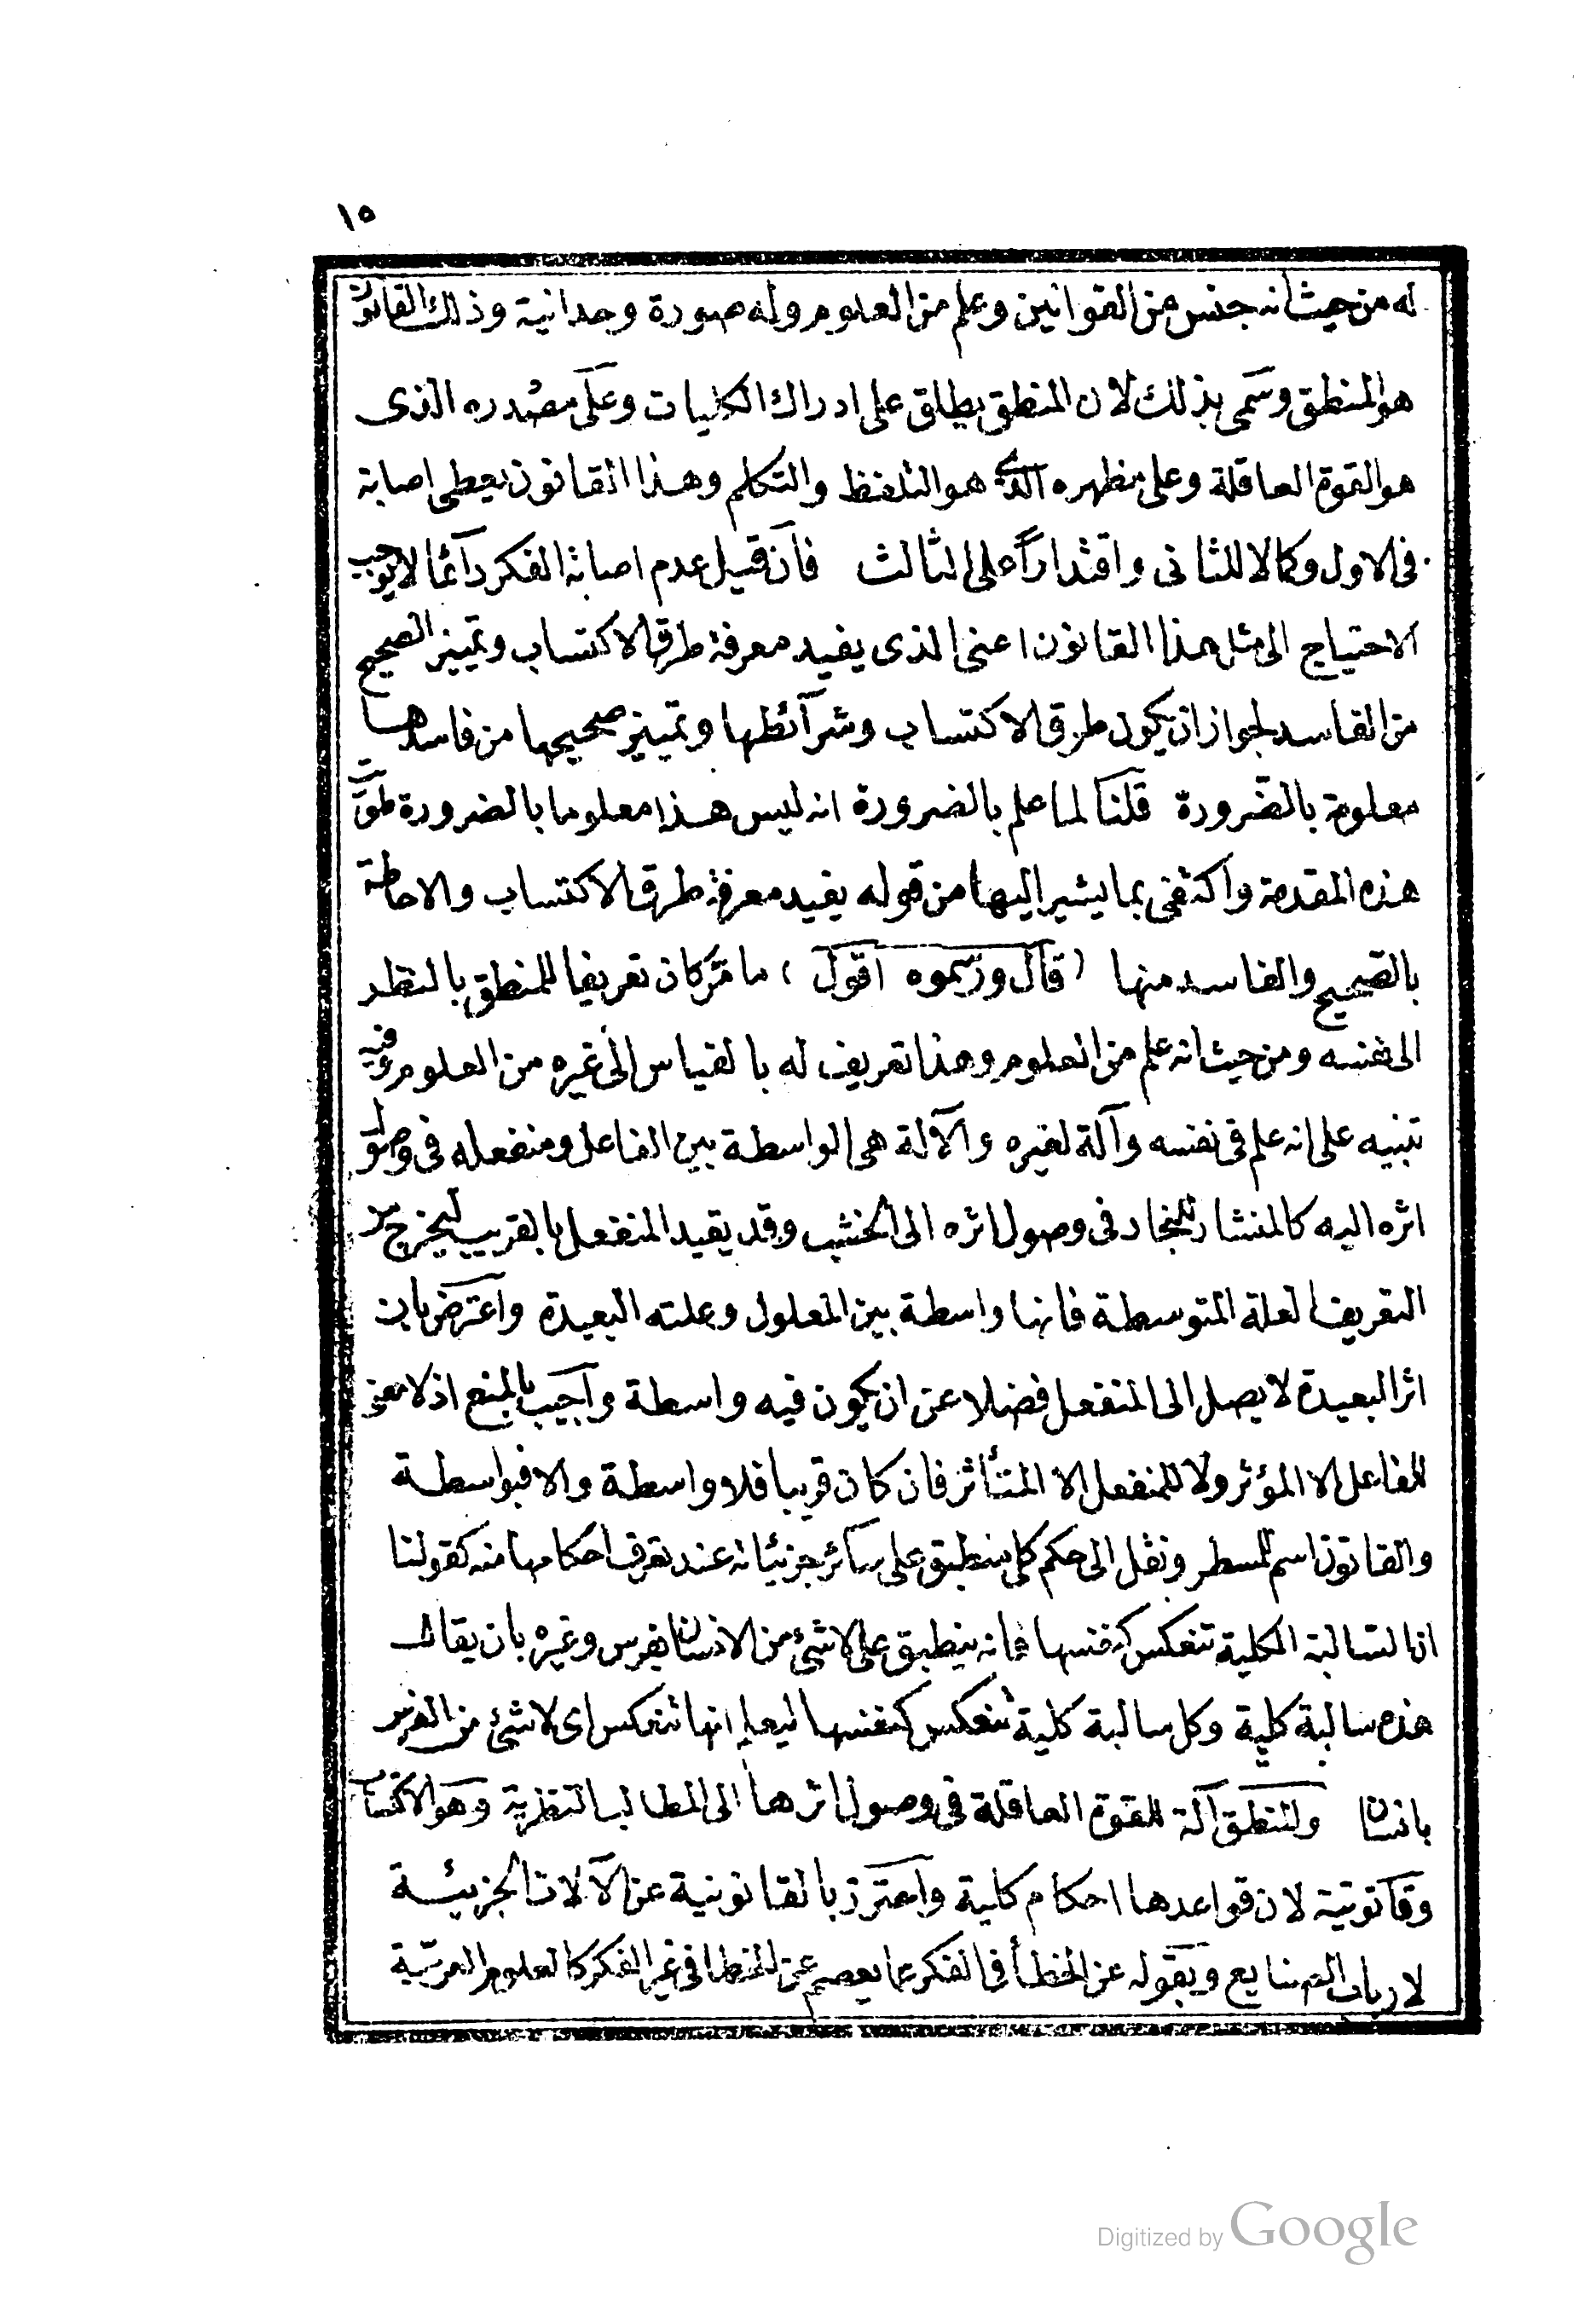 ١٥
له من حيث انه جنس من القوانين وعلم من العلوم وله صورة وحدانية وذلك القانون
هو المنطق وسمى بذلك لان المنطق يطلق على ادراك الكليات وعلى مصدره الذى
هو القوة العاقلة وعلى مظهره الذى هو التلفظ والتكلم وهذا القانون يعطى اصابة
فى الاول وكمالا للثانى واقتدارا على الثالث فان قيل عدم اصابة الفكر دائما لا يوجب
الاحتياج الى مثل هذا القانون اعنى الذى يفيد معرفة طرق الاكتساب وتمييز الصحيح
من الفاسد لجواز ان يكون طرق الاكتساب وشرآئطها وتمييز صحيحها من فاسدها
معلومة بالضرورة قلنا لما علم بالضرورة انه ليس هذا معلوما بالضرورة طوى
هذه المقدمة واكتفى بما يشير اليها من قوله يفيد معرفة طرق الاكتساب والاحاطة
بالصحيح والفاسد منها ( قال ورسموه اقول ) ما مر كان تعريفا للمنطق بالنظر
الى نفسه ومن حيث انه علم من العلوم وهذا تعريف له بالقياس الى غيره من العلوم وفيه
تنبيه على انه علم فى نفسه وآلة لغيره والآلة هى الواسطة بين الفاعل ومنفعله فى وصول
اثره اليه كالمنشار للنجار فى وصول اثره الى الخشب وقد يقيد المنفعل بالقريب ليخرج عن
التعريف العلة المتوسطة فانها واسطة بين المعلول وعلته البعيدة واعترض بان
اثر البعيدة لا يصل الى المنفعل فضلا عن ان يكون فيه واسطة واجيب بالمنع اذ لا معنى
للفاعل الا المؤثر ولا للمنفعل الا المتأثر فان كان قريبا فلا واسطة والا فبواسطة
والقانون اسم للمسطر ونقل الى حكم كلى منطبق على سائر جزئياته عند تعرف احكامها منه كقولنا
ان السالبة الكلية تنعكس كنفسها فانه ينطبق على لا شئ من الانسان بفرس وغيره بان يقال
هذه سالبة كلية وكل سالبة كلية تنعكس كنفسها ليعلم انها تنعكس اى لا شئ من الفرس
بانسان والمنطق آلة للقوة العاقلة فى وصول اثرها الى المطالب النظرية وهو الاكتساب
وقانونية لان قواعدها احكام كلية واحترز بالقانونية عن الآلات الجزئية
لارباب الصنايع وبقوله عن الخطأ فى الفكر عما يعصم عن الخطا فى غير الفكر كالعلوم العربية
Digitized by Google